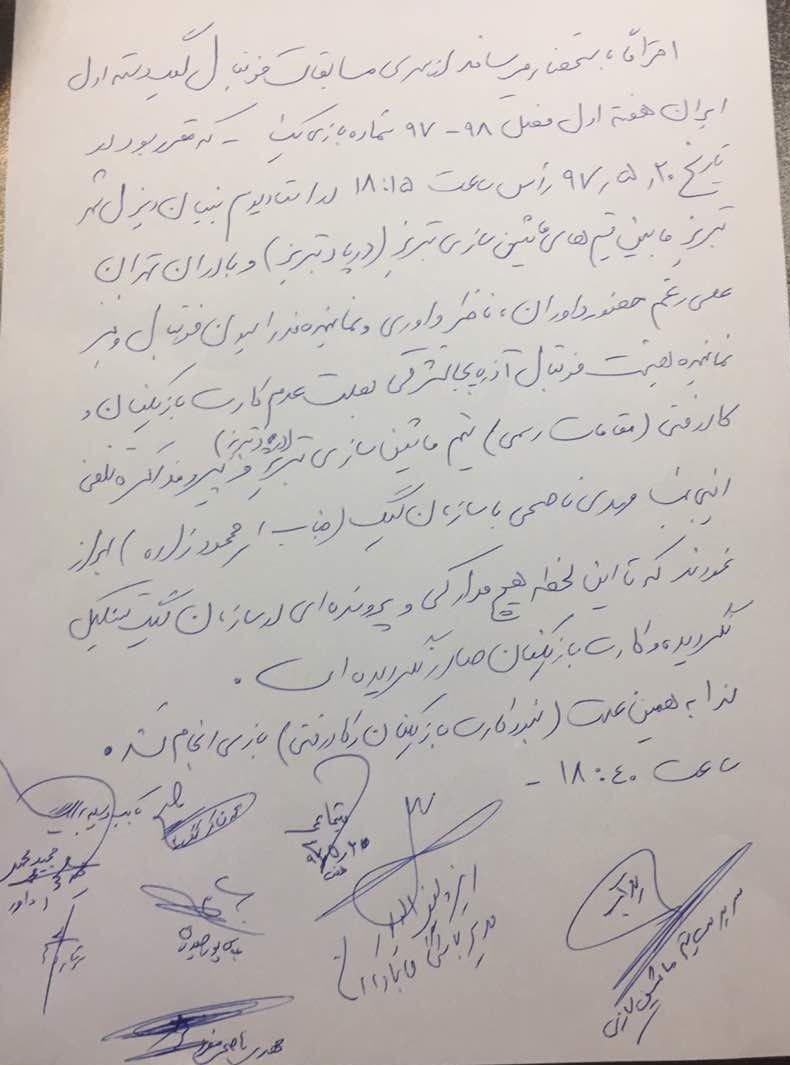 احتراماً باستحضار میرساند از سری مسابقات فوتبال لیگ دسته اول
ایران هفته اول فصل ۹۸-۹۷ شماره بازی یک - که مقرر بود در
تاریخ ۹۷٫۵٫۲۰ رأس ساعت ۱۸:۱۵ در استادیوم بنیان دیزل شهر
تبریز مابین تیم های ماشین سازی تبریز (در پاد تبریز) و بادران تهران
علی رغم حضور داوران، ناظر داوری و نماینده فدراسیون فوتبال و نیز
نماینده هیئت فوتبال آذربایجانشرقی بعلت عدم کارت بازیکنان و
کادرفنی (مقامات رسمی) تیم ماشین سازی تبریز و پیرو مذاکره تلفنی
اینجانب مهدی ناصحی با سازمان لیگ (جناب محمودزاده) ابراز
نمودند که تا این لحظه هیچ مدارکی و پرونده ای در سازمان لیگ تشکیل
نگردیده و کارت بازیکنان صادر نگردیده است.
لذا به همین علت (نبود کارت بازیکنان و کادرفنی) بازی انجام نشد.
ساعت ۱۸:۴۰ -
مدیر باشگاه بادران
سرپرست تیم ماشین سازی
داور
مهدی ناصحی